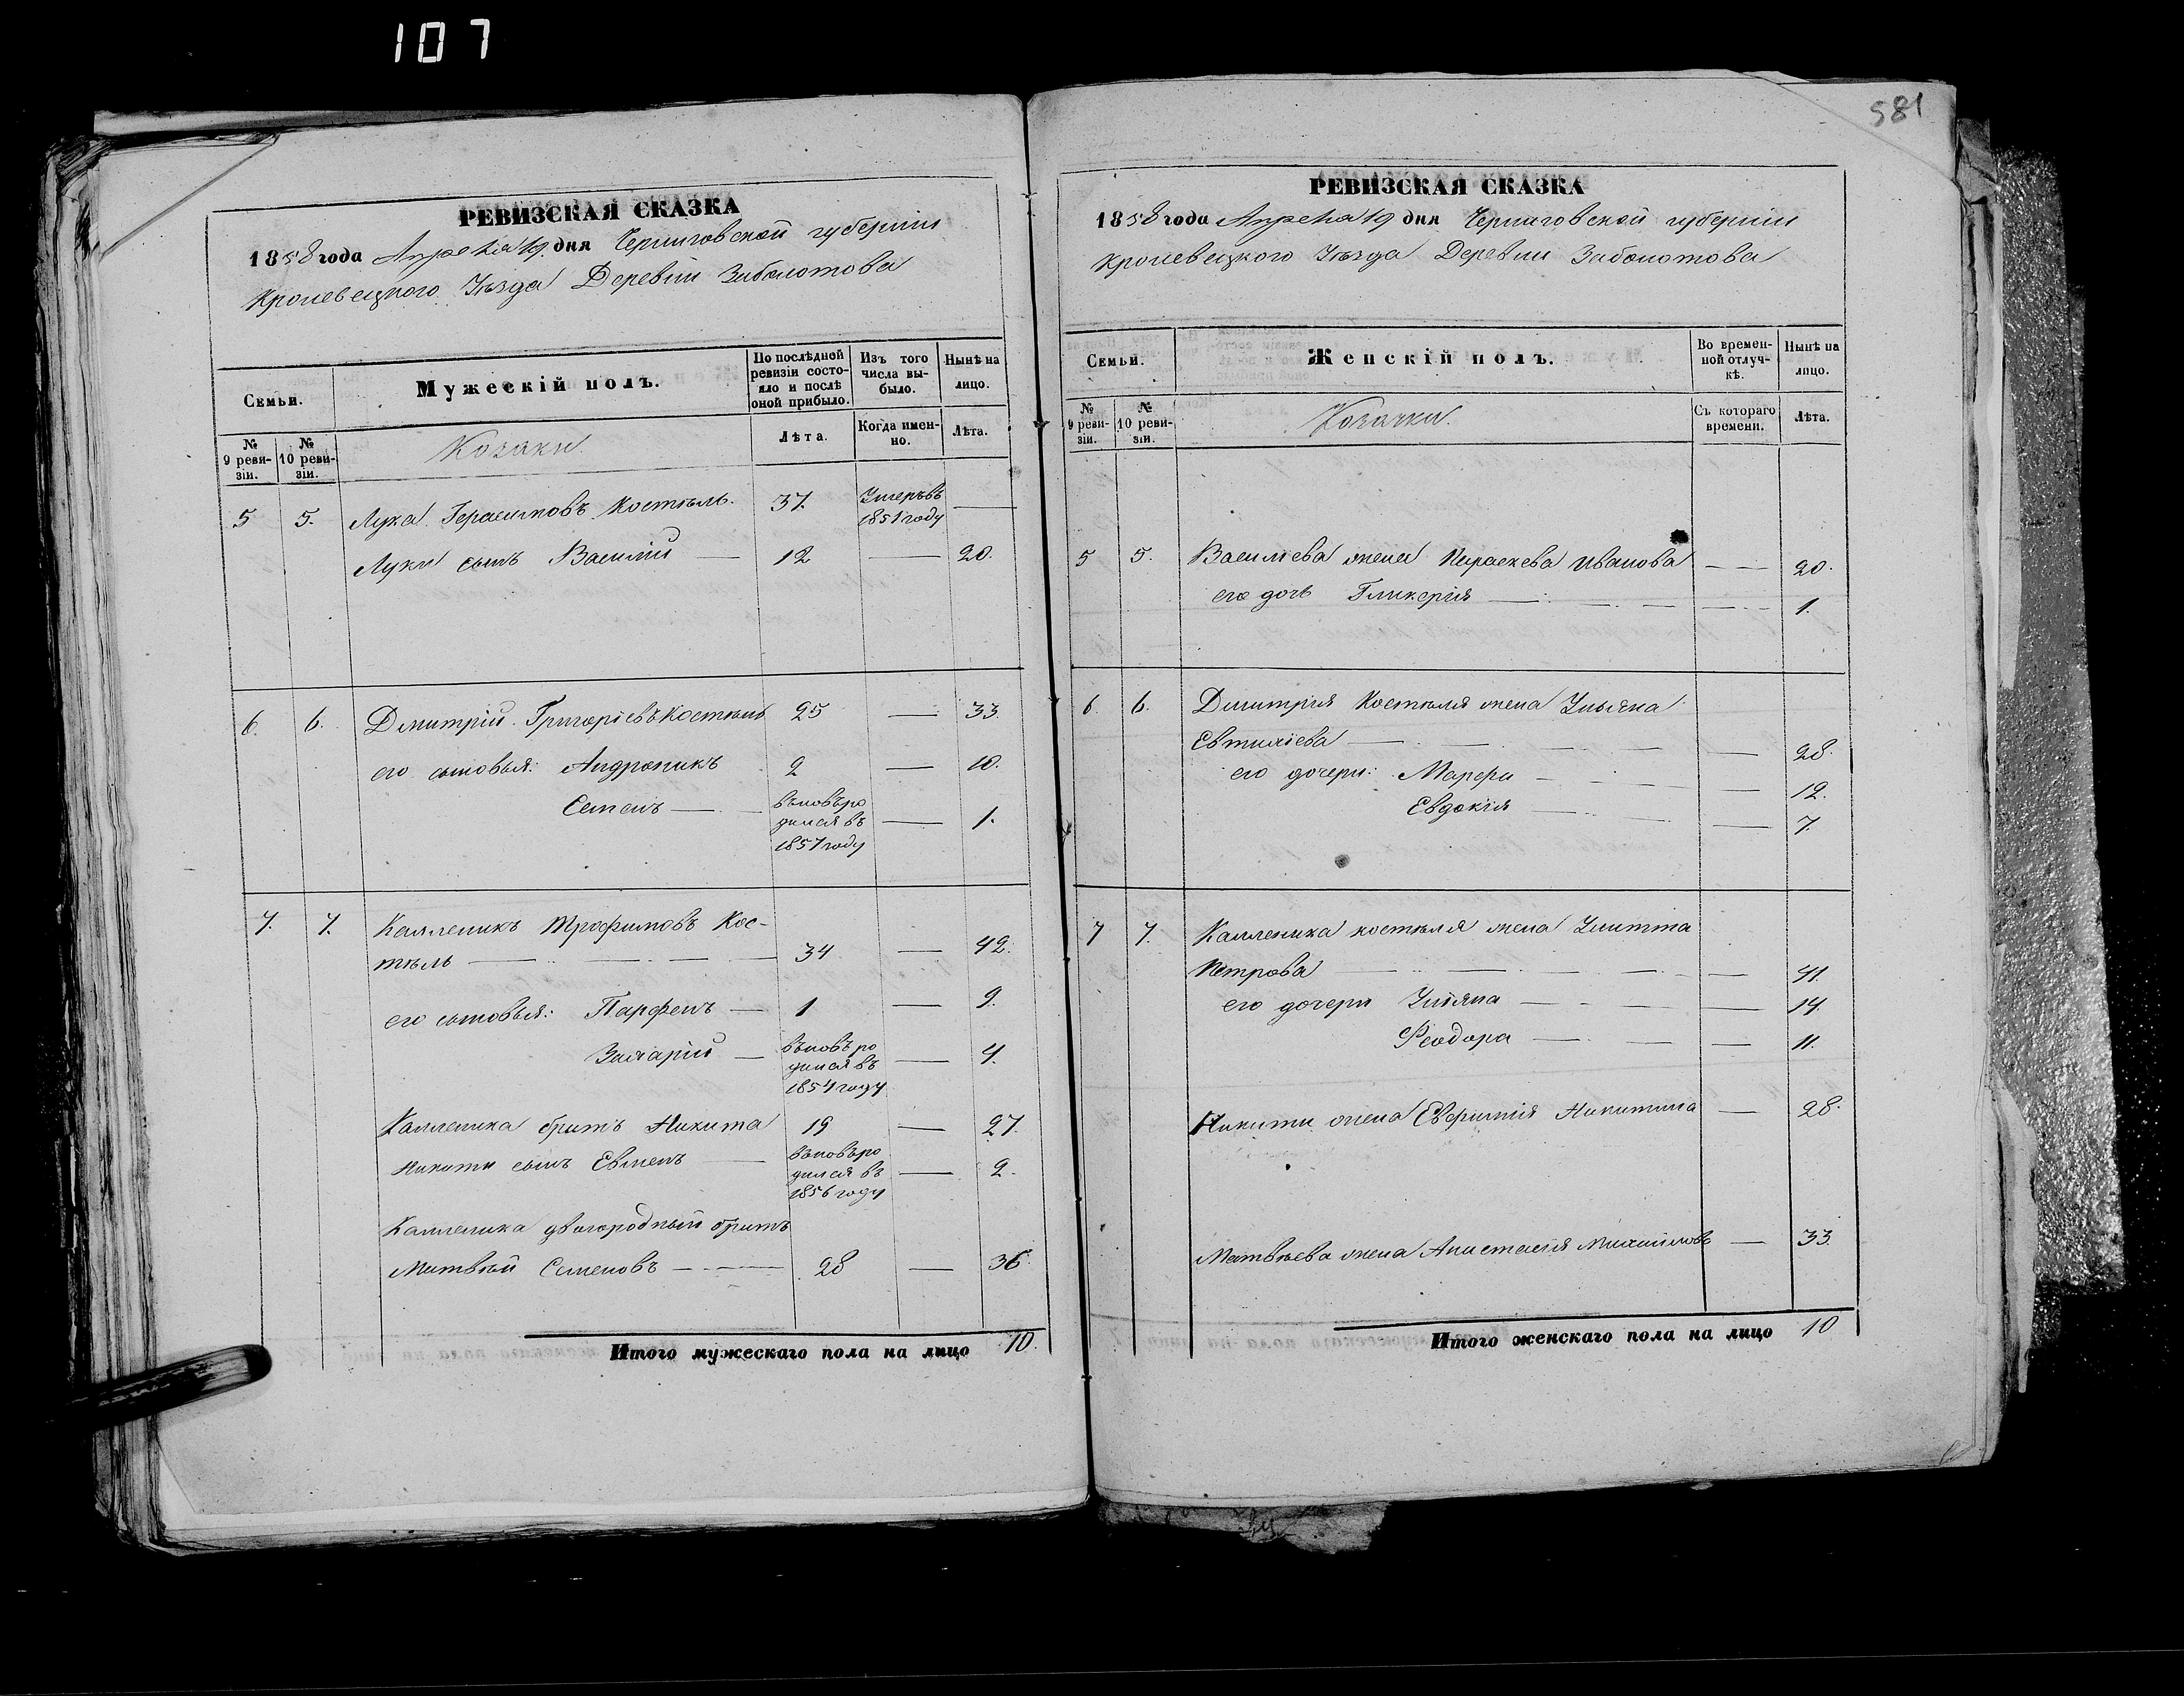 107
581
РЕВИЗСКАЯ СКАЗКА
1858 года Апреля 19 дня Черниговской губерніи
Кролевецкого Уѣзда Деревни Заболотова
Семьи.
Мужескій полъ.
По послѣдней ревизіи состояло и послѣ оной прибыло.
Изъ того числа выбыло.
Нынѣ на лицо.
№ 9 ревизіи.
№ 10 ревизіи.
Козаки
Лѣта.
Когда именно.
Лѣта.
5 5. Лука Герасимовъ Костѣль. 37. Умеръ въ 1851 году —
Луки сынъ Василій — 12 — 20.
6. 6. Дмитрій Григоріевъ Костѣль 25 — 33.
его сыновья: Андроникъ 2 — 10.
Семенъ — вновь родился въ 1857 году — 1.
7. 7. Калленикъ Трофимовъ Кос-
тѣль — 34 — 42.
его сыновья: Парфенъ — 1 — 9.
Захарій — вновь родился въ 1854 году — 4.
Калленика братъ Никита 19 — 27.
Никиты сынъ Евменъ — вновь родился въ 1856 году — 2.
Калленика двоюродный братъ
Матвѣй Семеновъ — 28 — 36.
Итого мужескаго пола на лицо 10.
РЕВИЗСКАЯ СКАЗКА
1858 года Апреля 19 дня Черниговской губерніи
Кролевецкого Уѣзда Деревни Заболотова
Семьи.
Женскій полъ.
Во временной отлучкѣ.
Нынѣ на лицо.
№ 9 ревизіи.
№ 10 ревизіи.
Козачки.
Съ котораго времени.
Лѣта.
5 5. Василіева жена Параскева Иванова — 20.
его дочь Гликерія — 1.
6. 6. Дмитрія Костѣля жена Ульяна
— 28.
его дочери: Марфа — 12.
Евдокія — 7.
7 7. Калленика костѣля жена
Петрова — 41.
его дочери Ульяна — 14.
Феодора — 11.
Никиты жена Евфимія Никитина — 28.
Матвѣева жена Анастасія Михайлова — 33.
Итого женскаго пола на лицо 10